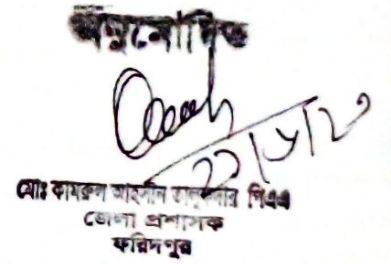 অনুমোদিত
মোঃ কামরুল আহসান তালুকদার পিএএ
জেলা প্রশাসক
ফরিদপুর